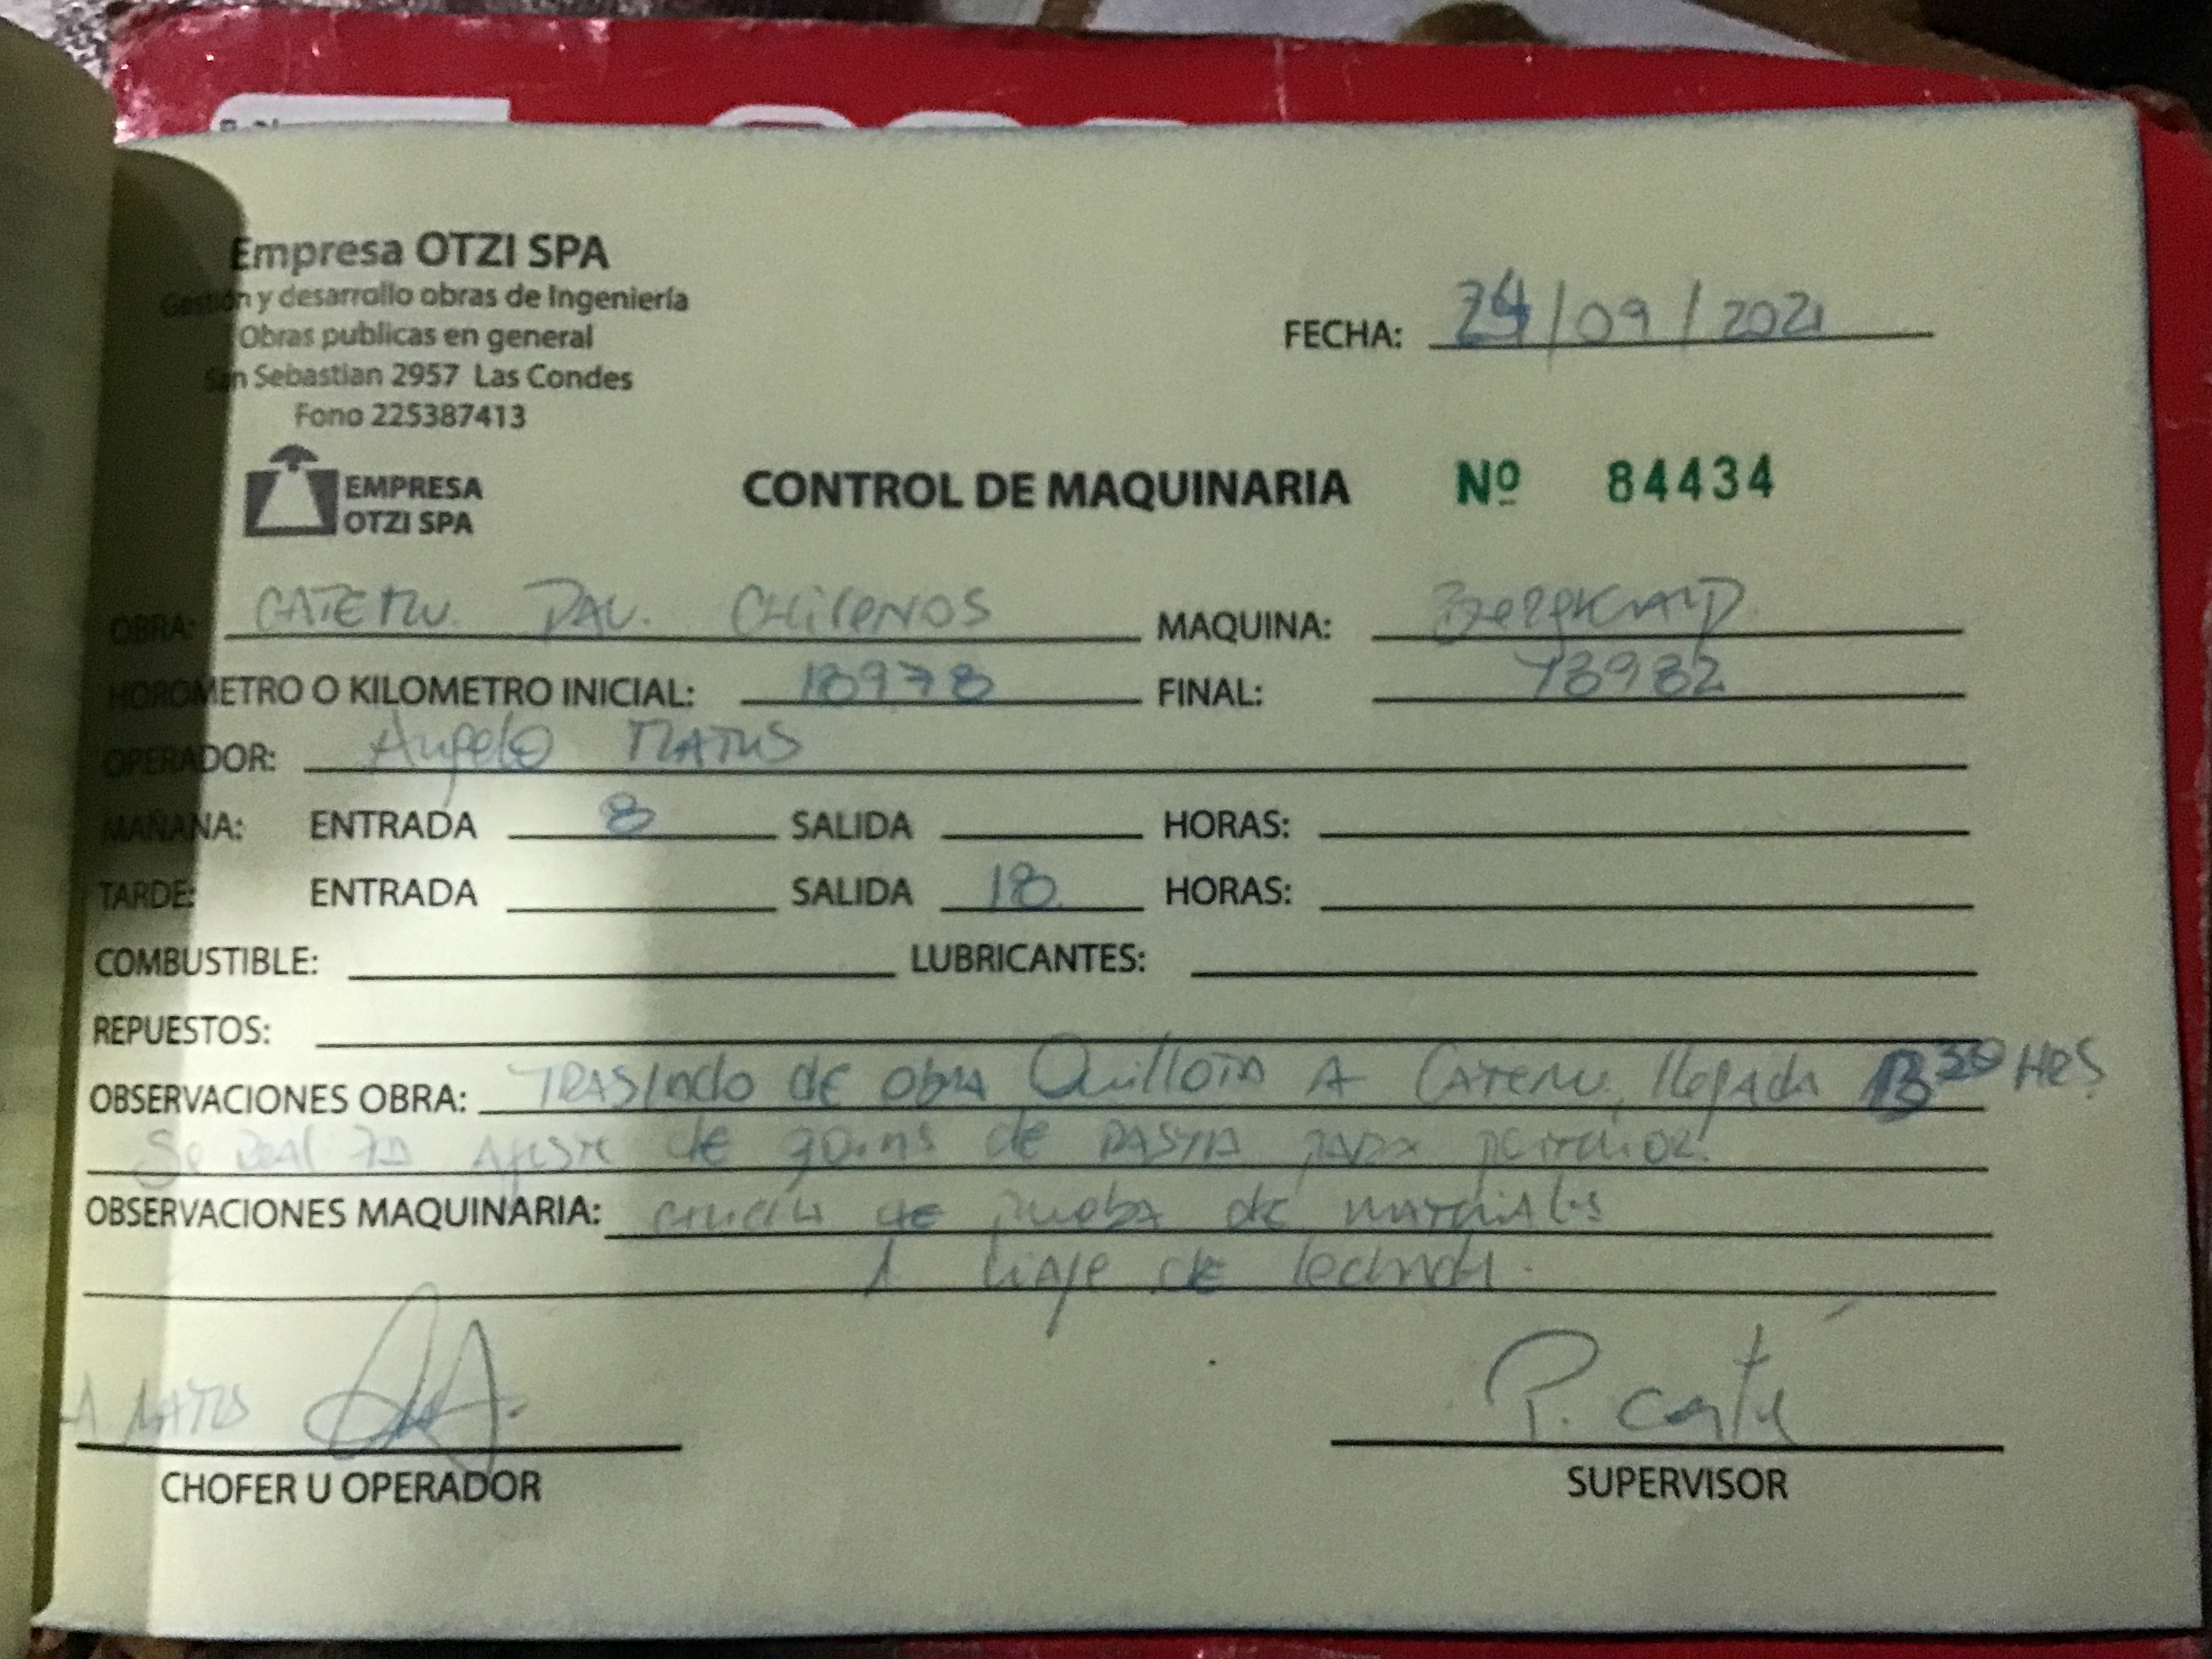 Empresa OTZI SPA
Gestión y desarrollo obras de Ingeniería
Obras publicas en general
San Sebastian 2957 Las Condes
Fono 225387413
FECHA: 24/09/2021
EMPRESA
OTZI SPA
CONTROL DE MAQUINARIA Nº 84434
OBRA: CATEMU PAV. CHILENOS MAQUINA:
HOROMETRO O KILOMETRO INICIAL: 18978 FINAL: 18982
OPERADOR:
MAÑANA: ENTRADA 8 SALIDA HORAS:
TARDE: ENTRADA SALIDA 18 HORAS:
COMBUSTIBLE: LUBRICANTES:
REPUESTOS:
OBSERVACIONES OBRA: TRASlado de obra Quillota A Catemu. llegada 13 30 HRS
de de pasta para
OBSERVACIONES MAQUINARIA: de prueba de materiales
1 viaje de lechada.
CHOFER U OPERADOR
SUPERVISOR